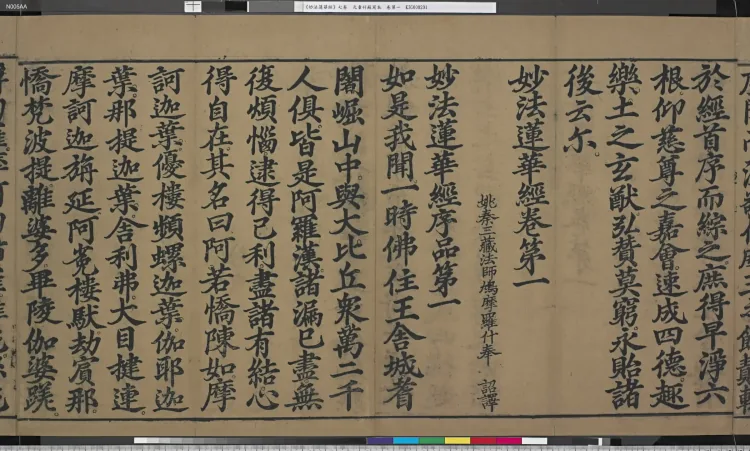 於經首序而綜之庶得早淨六
根仰慈尊之嘉會速成四德趣
樂土之玄猷弘贊莫窮永貽諸
後云尔
妙法蓮華經卷第一
姚秦三藏法師鳩摩羅什奉 詔譯
妙法蓮華經序品第一
如是我聞一時佛住王舍城耆
闍崛山中與大比丘衆萬二千
人俱皆是阿羅漢諸漏已盡無
復煩惱逮得己利盡諸有結心
得自在其名曰阿若憍陳如摩
訶迦葉優樓頻螺迦葉伽耶迦
葉那提迦葉舍利弗大目揵連
摩訶迦旃延阿㝹樓馱劫賓那
憍梵波提離婆多畢陵伽婆蹉